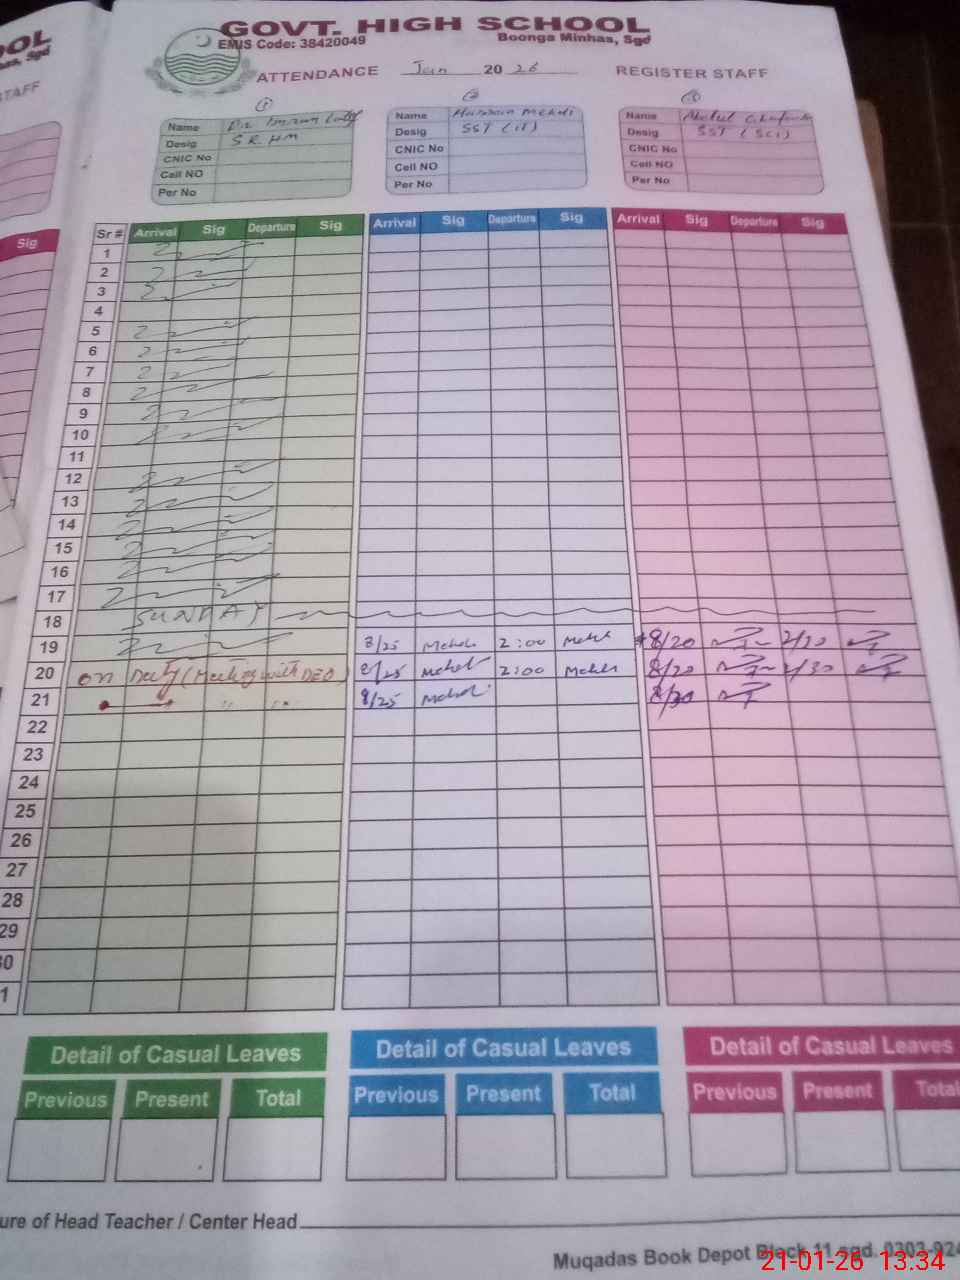 OOL
Sgd
STAFF
Sig
GOVT. HIGH SCHOOL
EMIS Code: 38420049
Boonga Minhas, Sgd
ATTENDANCE Jan 2026 REGISTER STAFF
1 2 3
Name Dr Imran
Desig SR. HM
CNIC No
Cell NO
Per No
Name Hasnain Mehdi
Desig SST (IT)
CNIC No
Cell NO
Per No
Name Abdul
Desig SST (Sci)
CNIC No
Cell NO
Per No
Sr # Arrival Sig Departure Sig Arrival Sig Departure Sig Arrival Sig Departure Sig
1
2
3
4
5
6
7
8
9
10
11
12
13
14
15
16
17
18 SUNDAY
19 8/25 Mehdi 2:00 Mehdi 8/20 2/30
20 on Duty (Meeting with DEO) 8/25 Mehdi 2:00 Mehdi 8/20 2/30
21 " " 8/25 Mehdi 8/30
22
23
24
25
26
27
28
29
30
1
Detail of Casual Leaves Detail of Casual Leaves Detail of Casual Leaves
Previous Present Total Previous Present Total Previous Present Total
ure of Head Teacher / Center Head
Muqadas Book Depot Block 11 sgd. 0303-924
21-01-26 13.34